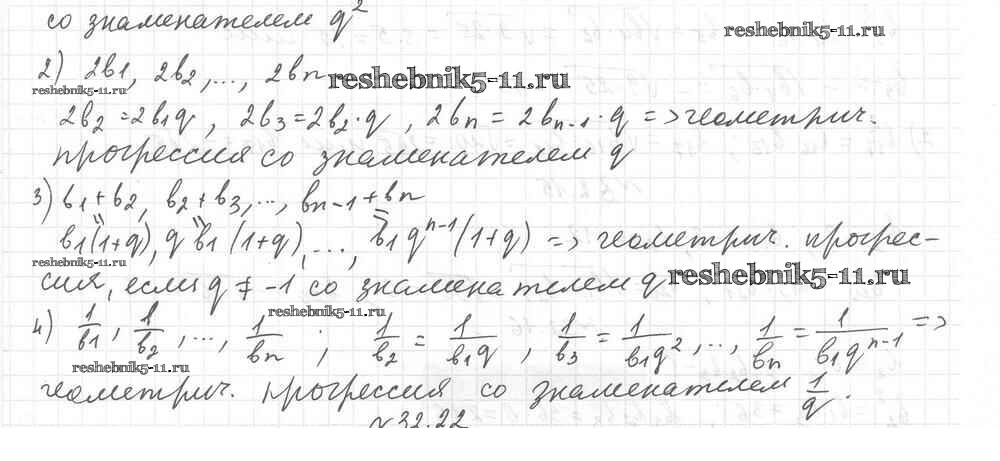 со знаменателем q²
reshebnik5-11.ru
2) 2b1, 2b2,..., 2bn
reshebnik5-11.ru
reshebnik5-11.ru
2b2 = 2b1q, 2b3 = 2b2·q, 2bn = 2bn-1·q => геометрич.
прогрессия со знаменателем q
3) b1+b2, b2+b3,..., bn-1+bn
b1(1+q), q b1(1+q),..., b1q^(n-1)(1+q) => геометрич. прогрес-
reshebnik5-11.ru
сия, если q ≠ -1 со знаменателем q
reshebnik5-11.ru
reshebnik5-11.ru
4) 1/b1, 1/b2,..., 1/bn ; 1/b2 = 1/b1q, 1/b3 = 1/b1q²,..., 1/bn = 1/b1q^(n-1), =>
reshebnik5-11.ru
геометрич. прогрессия со знаменателем 1/q.
№32.22